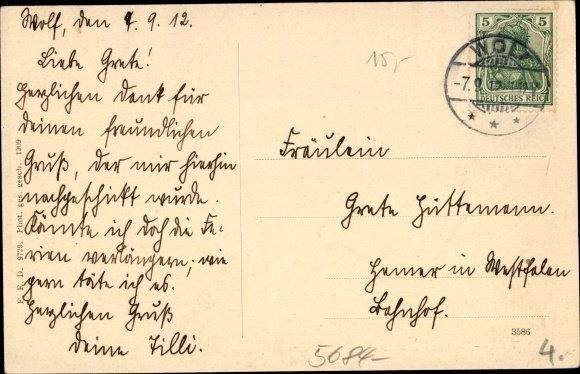 Wolf, den 7. 9. 12.
Liebe Grete!
Herzlichen Dank für
deinen freundlichen
Gruß, der mir hierhin
nachgeschickt wurde.
Könnte ich doch die Fe-
rien verlängern, wie
gern täte ich es.
Herzlichen Gruß
deine Tilli.
F. E. D. 9729. Phot. ges. gesch. 1909
15,-
5 5
DEUTSCHES REICH
WOLF
-7.9
Fräulein
Grete Hüttemann.
Hemer in Westfalen
Bahnhof.
3586
5684-
4.-